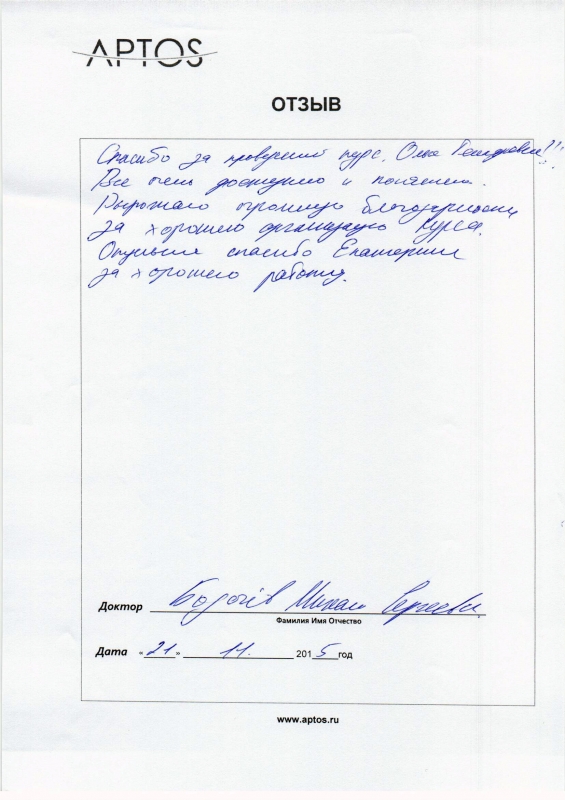 APTOS
ОТЗЫВ
Спасибо за курс, !!!
Все очень доступно и понятно.
Выражаю огромную благодарность
за хорошею организацию курса.
спасибо Екатерине
за хорошею работу.
Доктор Михаил Сергеевич
Фамилия Имя Отчество
Дата «21» 11. 2015 год
www.aptos.ru